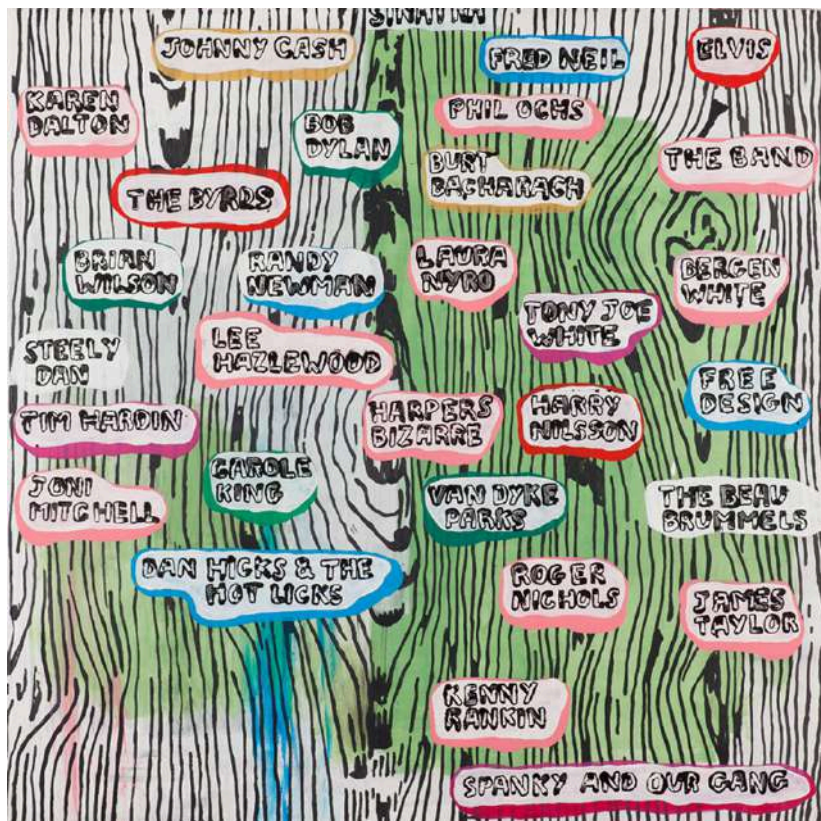 SINATRA
JOHNNY CASH
FRED NEIL
ELVIS
KAREN
DALTON
BOB
DYLAN
PHIL OCHS
BURT
BACHARACH
THE BAND
THE BYRDS
BRIAN
WILSON
RANDY
NEWMAN
LAURA
NYRO
BERGEN
WHITE
TONY JOE
WHITE
STEELY
DAN
LEE
HAZLEWOOD
FREE
DESIGN
TIM HARDIN
HARPERS
BIZARRE
HARRY
NILSSON
CAROLE
KING
JONI
MITCHELL
VAN DYKE
PARKS
THE BEAU
BRUMMELS
DAN HICKS & THE
HOT LICKS
ROGER
NICHOLS
JAMES
TAYLOR
KENNY
RANKIN
SPANKY AND OUR GANG